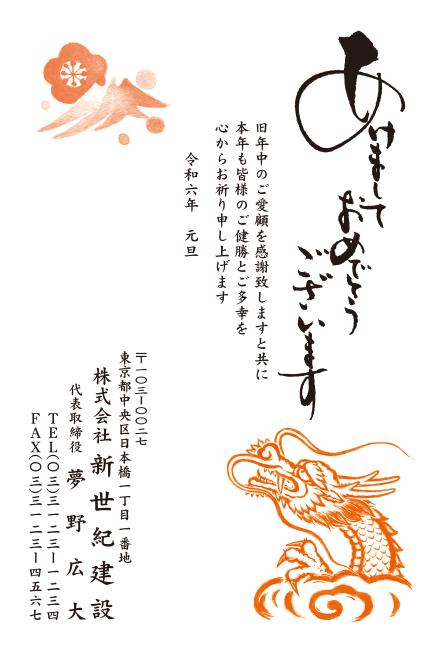 あけまして
おめでとう
ございます
旧年中のご愛顧を感謝致しますと共に
本年も皆様のご健勝とご多幸を
心からお祈り申し上げます
令和六年　元旦
〒一〇三-〇〇二七
東京都中央区日本橋一丁目一番地
株式会社 新世紀建設
代表取締役 夢野広大
TEL(〇三)三一二三-一二三四
FAX(〇三)三一二三-四五六七